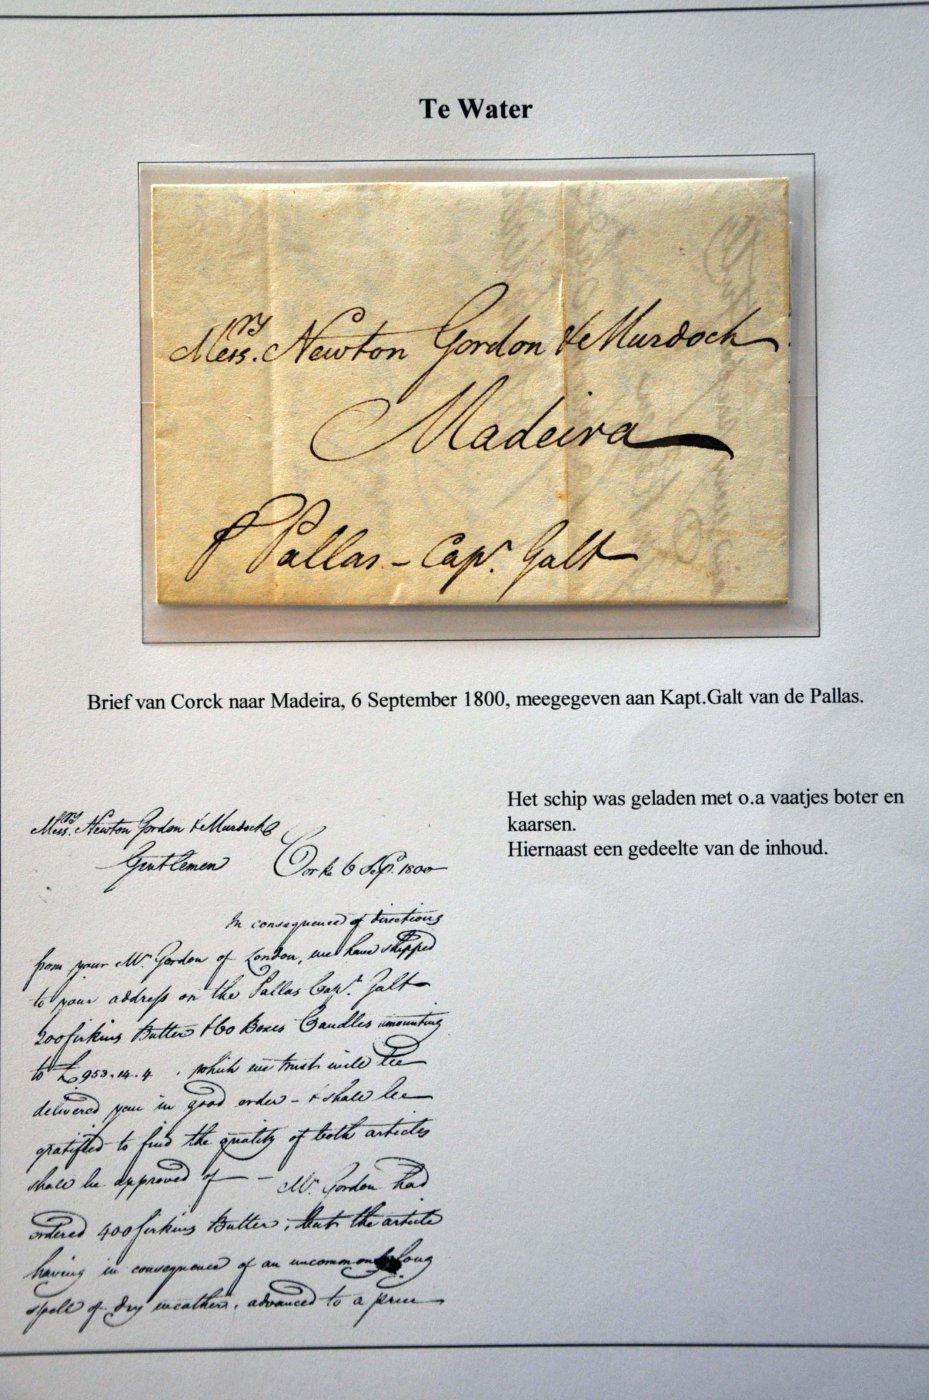 Te Water
Messrs. Newton Gordon & Murdoch
Madeira
P Pallas - Capt. Galt
Brief van Corck naar Madeira, 6 September 1800, meegegeven aan Kapt.Galt van de Pallas.
Het schip was geladen met o.a vaatjes boter en
kaarsen.
Hiernaast een gedeelte van de inhoud.
Messrs. Newton Gordon & Murdoch
Gentlemen Corke 6 Sep. 1800
In consequence of directions
from your Mr. Gordon of London, we have shipped
to your address on the Pallas Capt. Galt
200 firkins Butter & 60 Boxes Candles amounting
to £953.14.4. which we trust will be
delivered you in good order - & shall be
gratified to find the quality of both articles
shall be approved of - - Mr. Gordon had
ordered 400 firkins Butter, but the article
having in consequence of an uncommonly long
spell of dry weather, advanced to a price